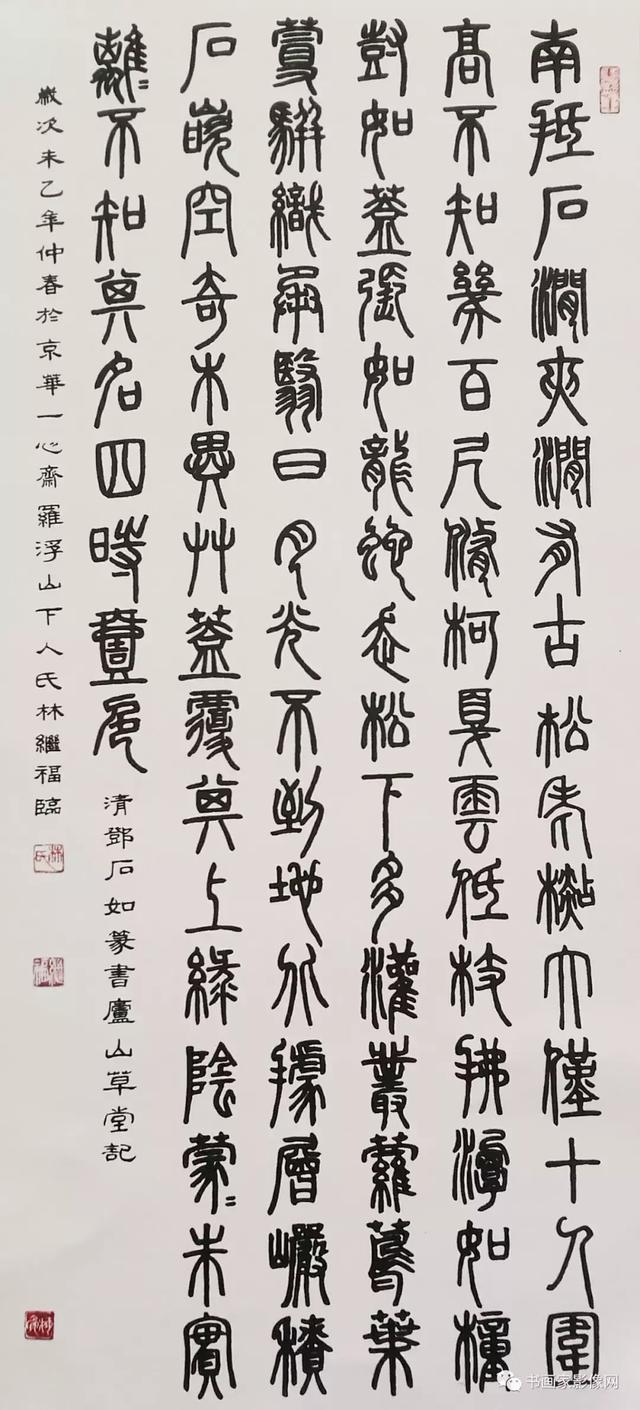 南抵石澗夾澗有古松老檆大僅十人圍
高不知幾百尺脩柯戛雲低枝拂潭如幢
尌如蓋張如龍蛇走松下多灌叢蘿蔦葉
蔓駢織承翳日月光不到地北據層巖積
石嵌空奇木異艸蓋覆其上綠陰蒙〻朱實
離〻不知其名四時壹色
清鄧石如篆書廬山草堂記
歲次未乙年仲春於京華一心齋羅浮山下人氏林繼福臨
林氏
繼福
书画家影像网